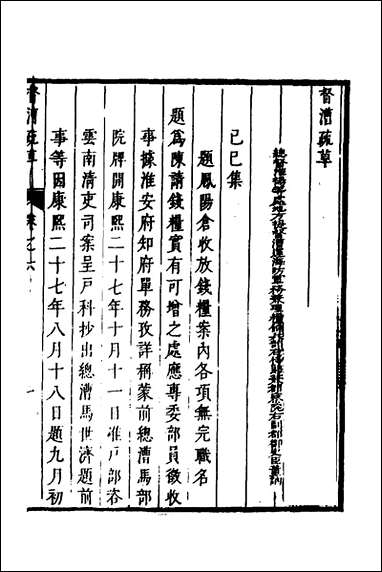 督漕疏草
總督淮揚等處地方提督漕運海防軍務兼理糧餉
右副都御史臣董訥
己巳集
題鳳陽倉收放錢糧案內各項無完職名
題爲陳請錢糧實有可增之處應專委部員徵收
事據淮安府知府單務孜詳稱蒙前總漕馬部
院牌開康熙二十七年十月十一日准戶部咨
雲南清吏司案呈戶科抄出總漕馬世濟題前
事等因康熙二十七年八月十八日題九月初
督漕疏草
卷之六
一